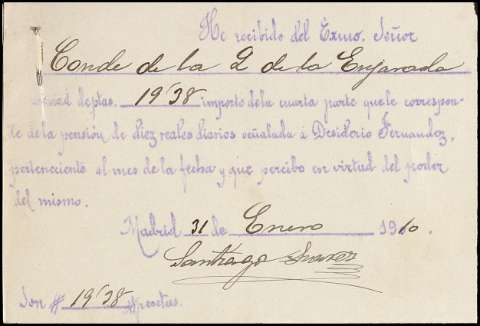 He recibido del Exmo. Señor
Conde de la Q de la Enjarada
la cantidad de ptas. 19'38 importe de la cuarta parte que le correspon-
de de la pensión de diez reales diarios señalada á Desiderio Fernandez,
perteneciente al mes de la fecha y que percibo en virtud del poder
del mismo.
Madrid 31 de Enero 1910.
Santiago Suarez
Son # 19'38 # pesetas.